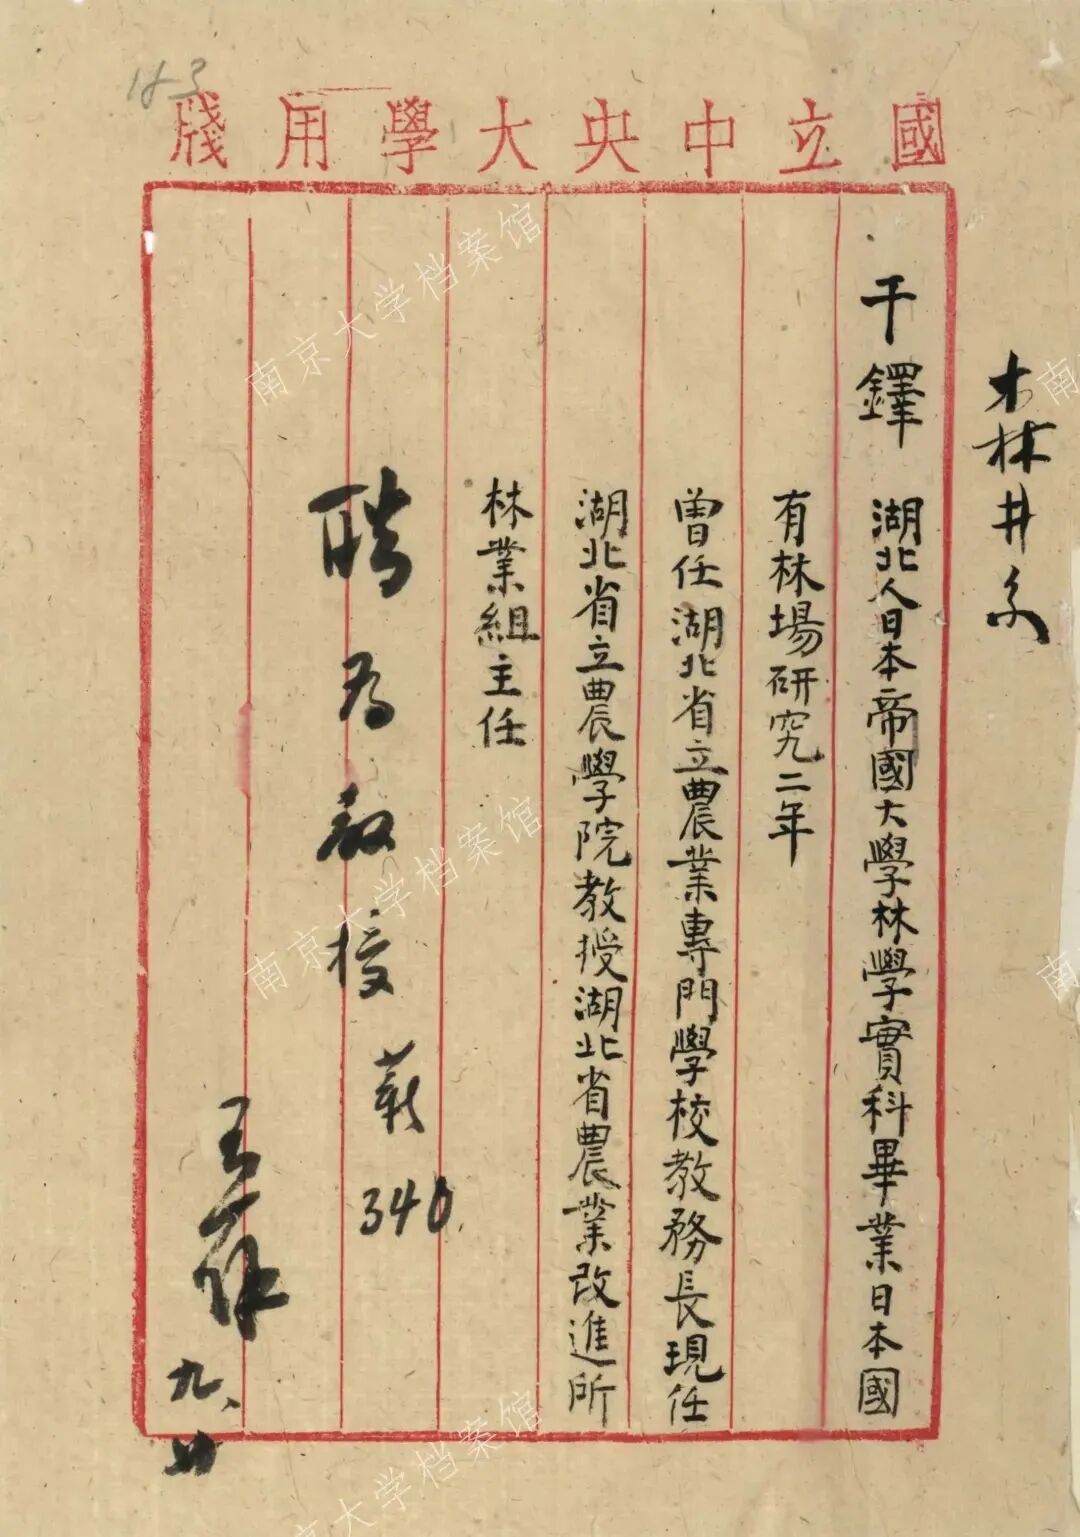 183
國立中央大學用牋
森林系
干鐸 湖北人日本帝國大學林學實科畢業日本國
有林場研究二年
曾任湖北省立農業專門學校教務長現任
湖北省立農學院教授湖北省農業改進所
林業組主任
聘為教授 薪340
九、廿
南京大学档案馆
南京大学档案馆
南京大学档案馆